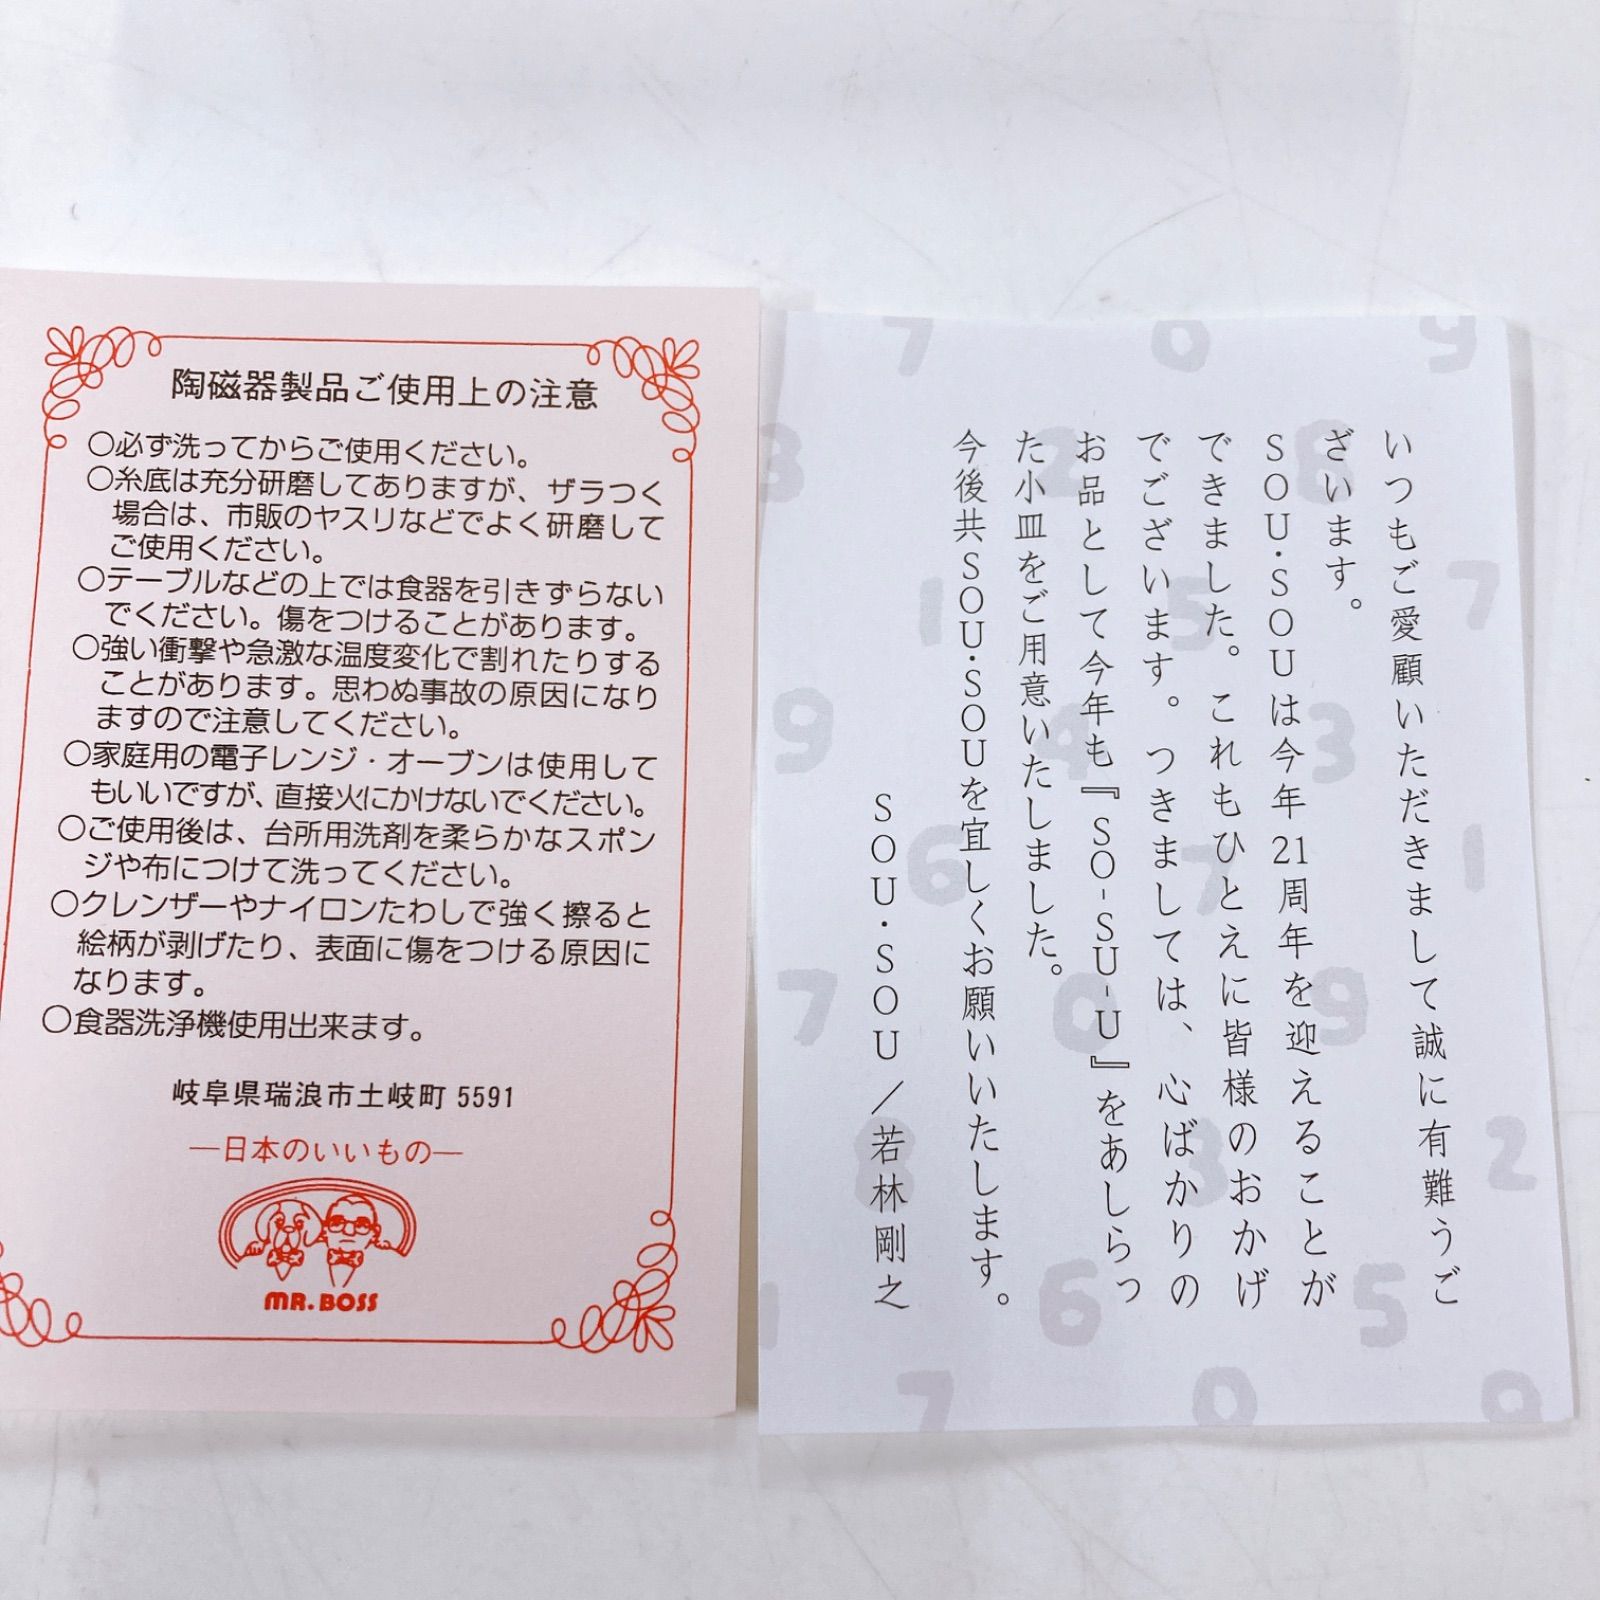 陶磁器製品ご使用上の注意
○必ず洗ってからご使用ください。
○糸底は充分研磨してありますが、ザラつく
場合は、市販のヤスリなどでよく研磨して
ご使用ください。
○テーブルなどの上では食器を引きずらない
でください。傷をつけることがあります。
○強い衝撃や急激な温度変化で割れたりする
ことがあります。思わぬ事故の原因になり
ますので注意してください。
○家庭用の電子レンジ・オーブンは使用して
もいいですが、直接火にかけないでください。
○ご使用後は、台所用洗剤を柔らかなスポン
ジや布につけて洗ってください。
○クレンザーやナイロンたわしで強く擦ると
絵柄が剥げたり、表面に傷をつける原因に
なります。
○食器洗浄機使用出来ます。
岐阜県瑞浪市土岐町 5591
―日本のいいもの―
MR. BOSS
いつもご愛顧いただきまして誠に有難うご
ざいます。
SOU・SOUは今年21周年を迎えることが
できました。これもひとえに皆様のおかげ
でございます。つきましては、心ばかりの
お品として今年も『SO-SU-U』をあしらっ
た小皿をご用意いたしました。
今後共SOU・SOUを宜しくお願いいたします。
SOU・SOU／若林剛之
7 0 9
3 2 8
1 5 7
9 4 3
6 7 1
7 0 9
8 3 2
1 6 5
7 0 9